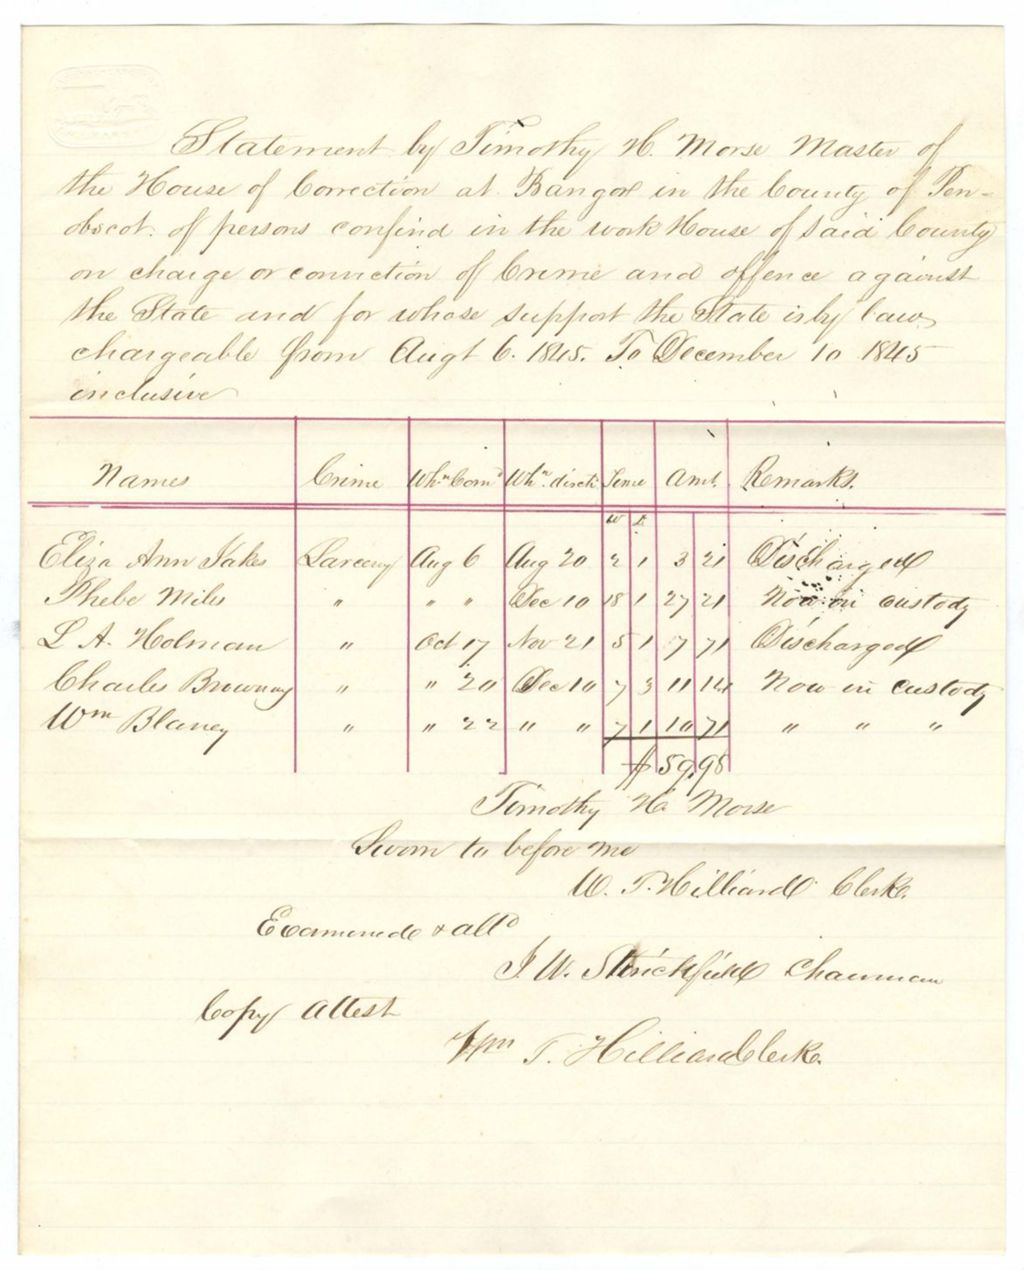 Statement by Timothy H. Morse Master of
the House of Correction at Bangor in the County of Pen-
obscot. of persons confind in the work House of said County
on charge or conviction of Crime and offence against
the State and for whose support the State is by law
chargeable from Augt 6. 1845. To December 10 1845
inclusive
Names Crime Whn Comd Whn. disch Time Amt. Remarks.
W D
Eliza Ann Jakes Larceny Aug 6 Aug 20 2 1 3 21 Discharged
Phebe Miles " " " Dec 10 18 1 27 21 Now in custody
L A. Holman " Oct 17 Nov 21 5 1 7 71 Discharged
Charles Brownay " " 20 Dec 10 7 3 11 14 Now in custody
Wm Blaney " " 22 " " 7 1 10 71 " " "
$59.98
Timothy H. Morse
Sworn to before me
W. T. Hilliard Clerk.
Examined & alld
J W. Strickfield Chairman
Copy Attest
Wm T. Hilliard Clerk.